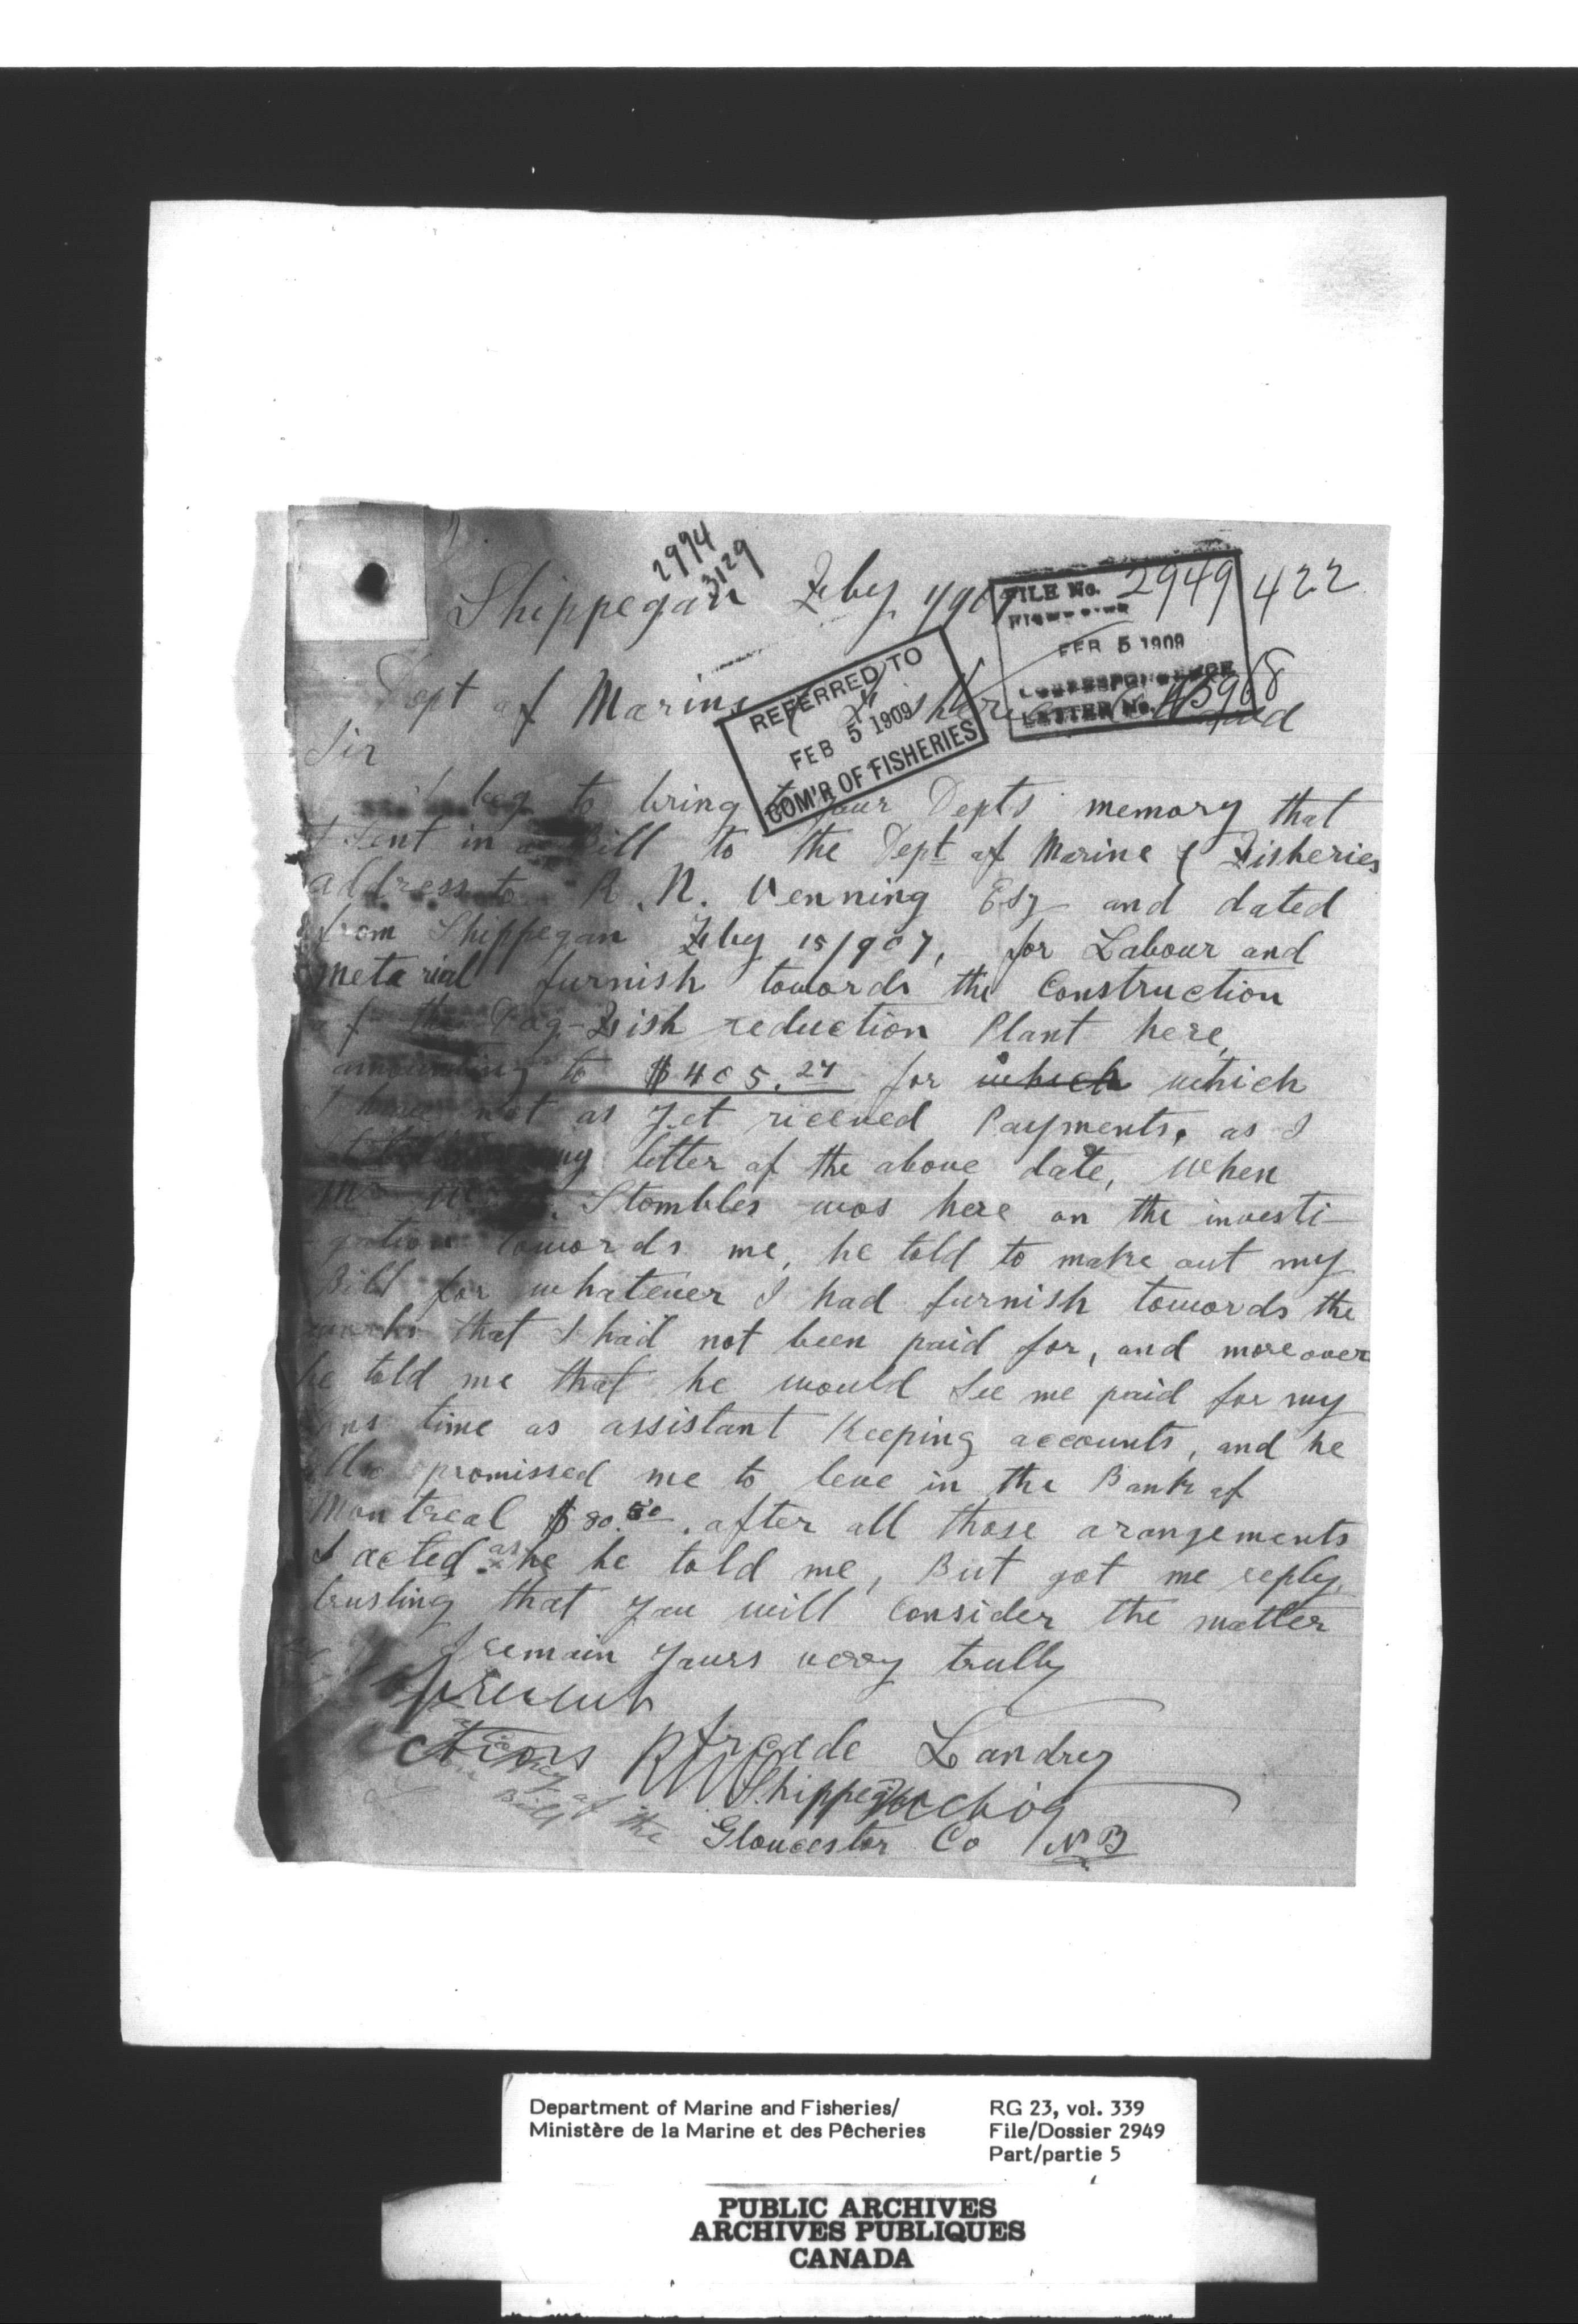 2994
3129
Shippegan Feby 1/909
FILE No. 2949 422
FEB 5 1909
CORRESPONDENCE
LETTER No.
REFERRED TO
FEB 5 1909
COM'R OF FISHERIES
Dept of Marine
Sir
I beg to bring to your Depts memory that
I sent in a Bill to the Dept of Marine & Fisheries
address to R. N. Venning Esq and dated
from Shippegan Feby 15/907, for Labour and
meterial furnish towards the Construction
of the Dog-Fish reduction Plant here,
amounting to $405.27 for which which
I have not as yet riceved Payments, as I
my letter of the above date, when
Mr Stombles was here on the investi-
gation towards me, he told to make out my
Bill for whatever I had furnish towards the
works that I had not been paid for, and more over
he told me that he would See me paid for my
sons time as assistant Keeping accounts, and he
allso promissed me to leve in the Bank of
Montreal $80.50. after all those arangements
I acted as he he told me, But got me reply,
trusting that you will Consider the matter
I remain yours very trully
Arcade Landry
Shippegan
Gloucester Co N B
a copy of the
Bill
Department of Marine and Fisheries/
Ministère de la Marine et des Pêcheries
RG 23, vol. 339
File/Dossier 2949
Part/partie 5
PUBLIC ARCHIVES
ARCHIVES PUBLIQUES
CANADA